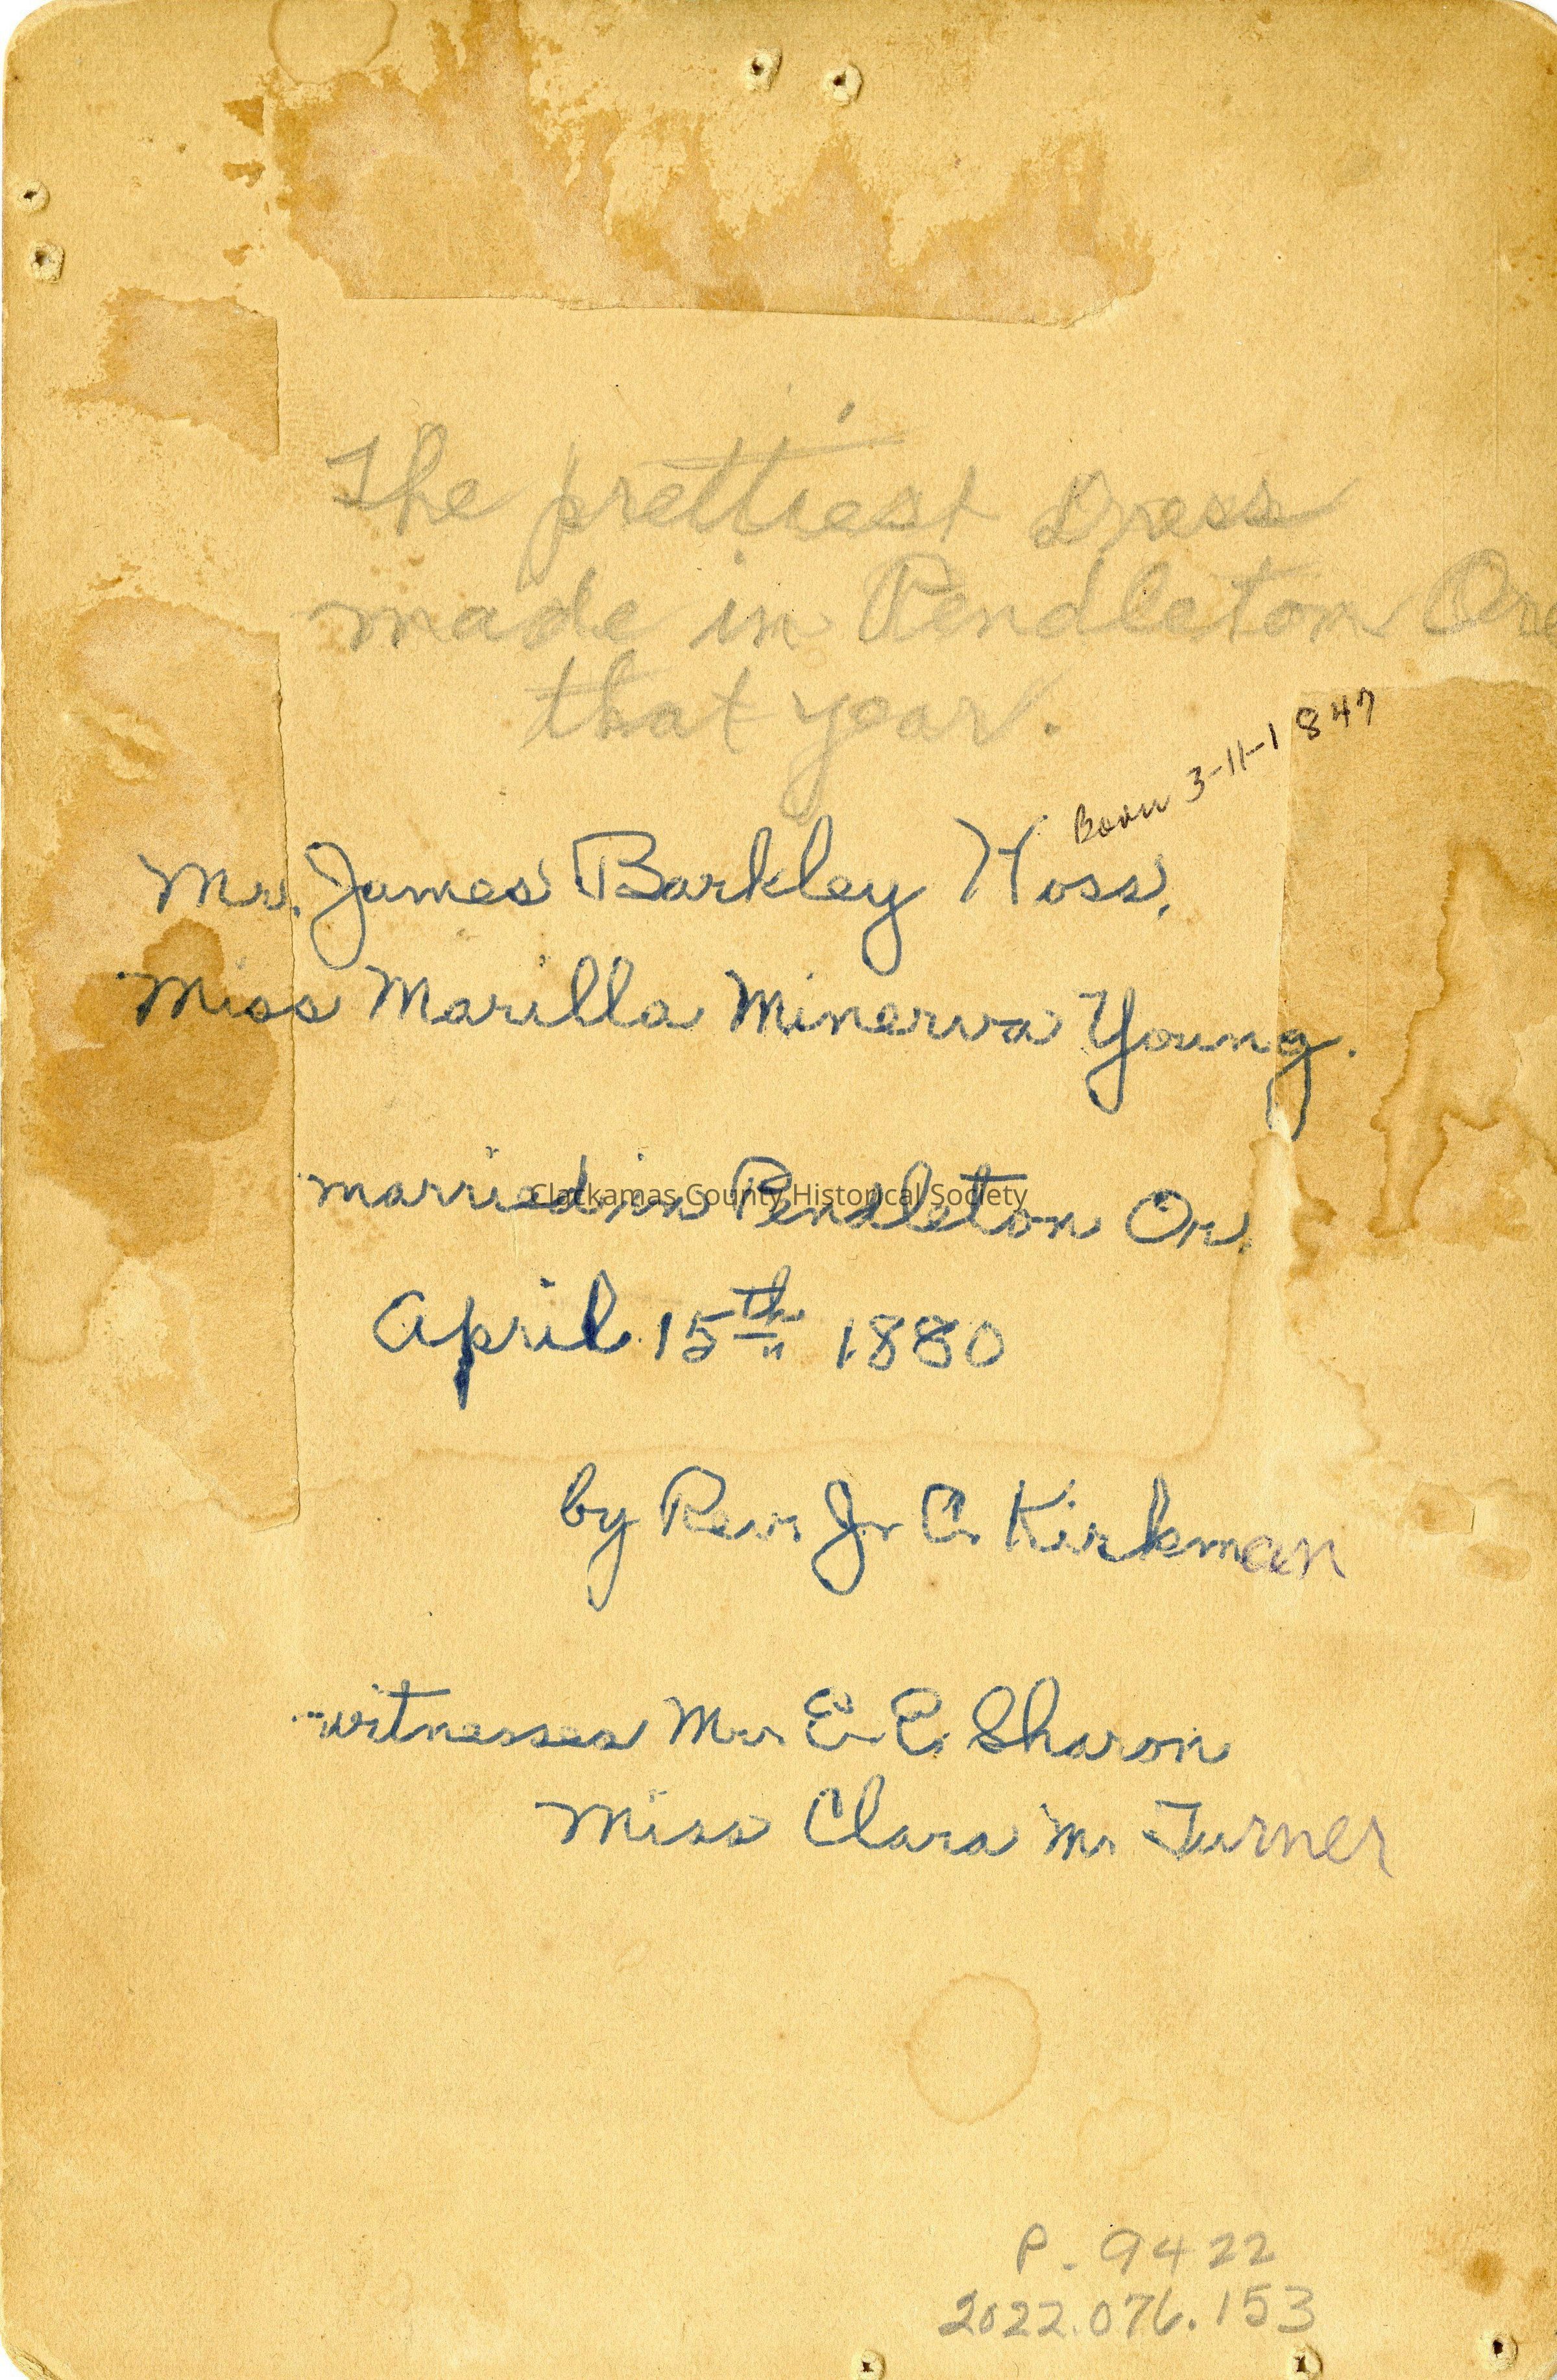 The prettiest Dress
made in Pendleton Ore
that year.
Born 3-11-1847
Mr. James Barkley Hoss,
Miss Marilla Minerva Young.
married in Pendleton Or.
Clackamas County Historical Society
April 15th 1880
by Rev. J. C. Kirkman
witnesses Mr. E. E. Sharon
Miss Clara M. Turner
P. 9422
2022.076.153